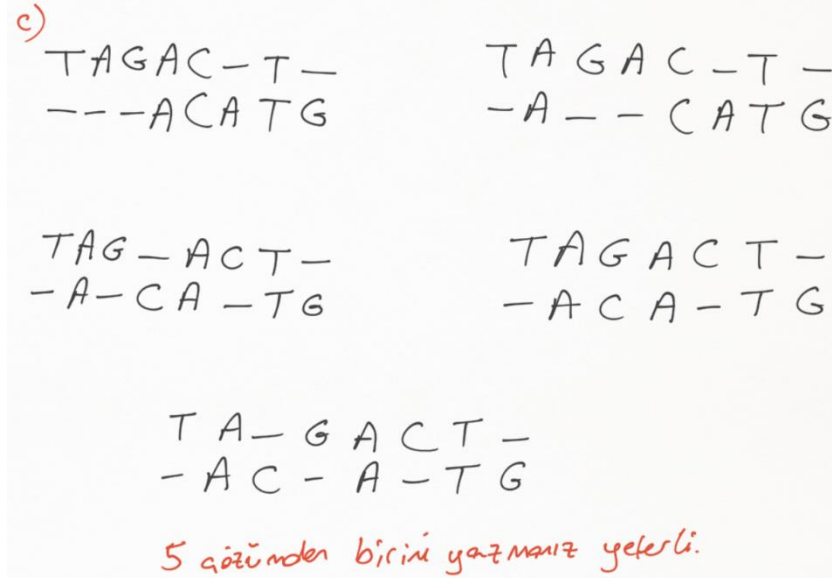 c)
TAGAC-T-
---ACATG
TAGAC-T-
-A--CATG
TAG-ACT-
-A-CA-TG
TAGACT-
-ACA-TG
TA-GACT-
-AC-A-TG
5 çözümden birini yazmanız yeterli.